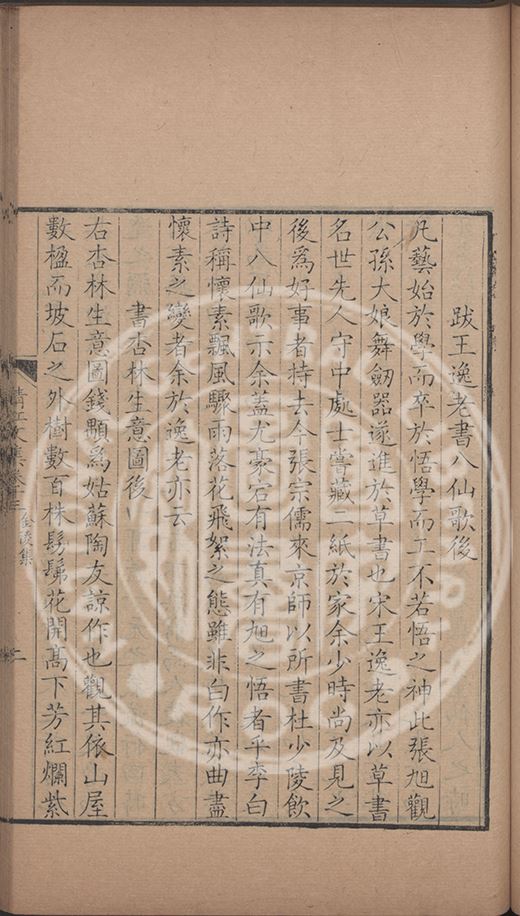 跋王逸老書八仙歌後
凡藝始於學而卒於悟學而工不若悟之神此張旭觀
公孫大娘舞劒器遂進於草書也宋王逸老亦以草書
名世先人守中處士嘗藏二紙於家余少時尚及見之
後爲好事者持去今張宗儒來京師以所書杜少陵飲
中八仙歌示余蓋尤豪宕有法真有旭之悟者乎李白
詩稱懷素飄風驟雨落花飛絮之態雖非白作亦曲盡
懷素之變者余於逸老亦云
書杏林生意圖後
右杏林生意圖錢顒爲姑蘇陶友諒作也觀其依山屋
數楹而坡石之外樹數百株髣髴花開髙下芳紅爛紫
清江文集卷十三 金陵集 二